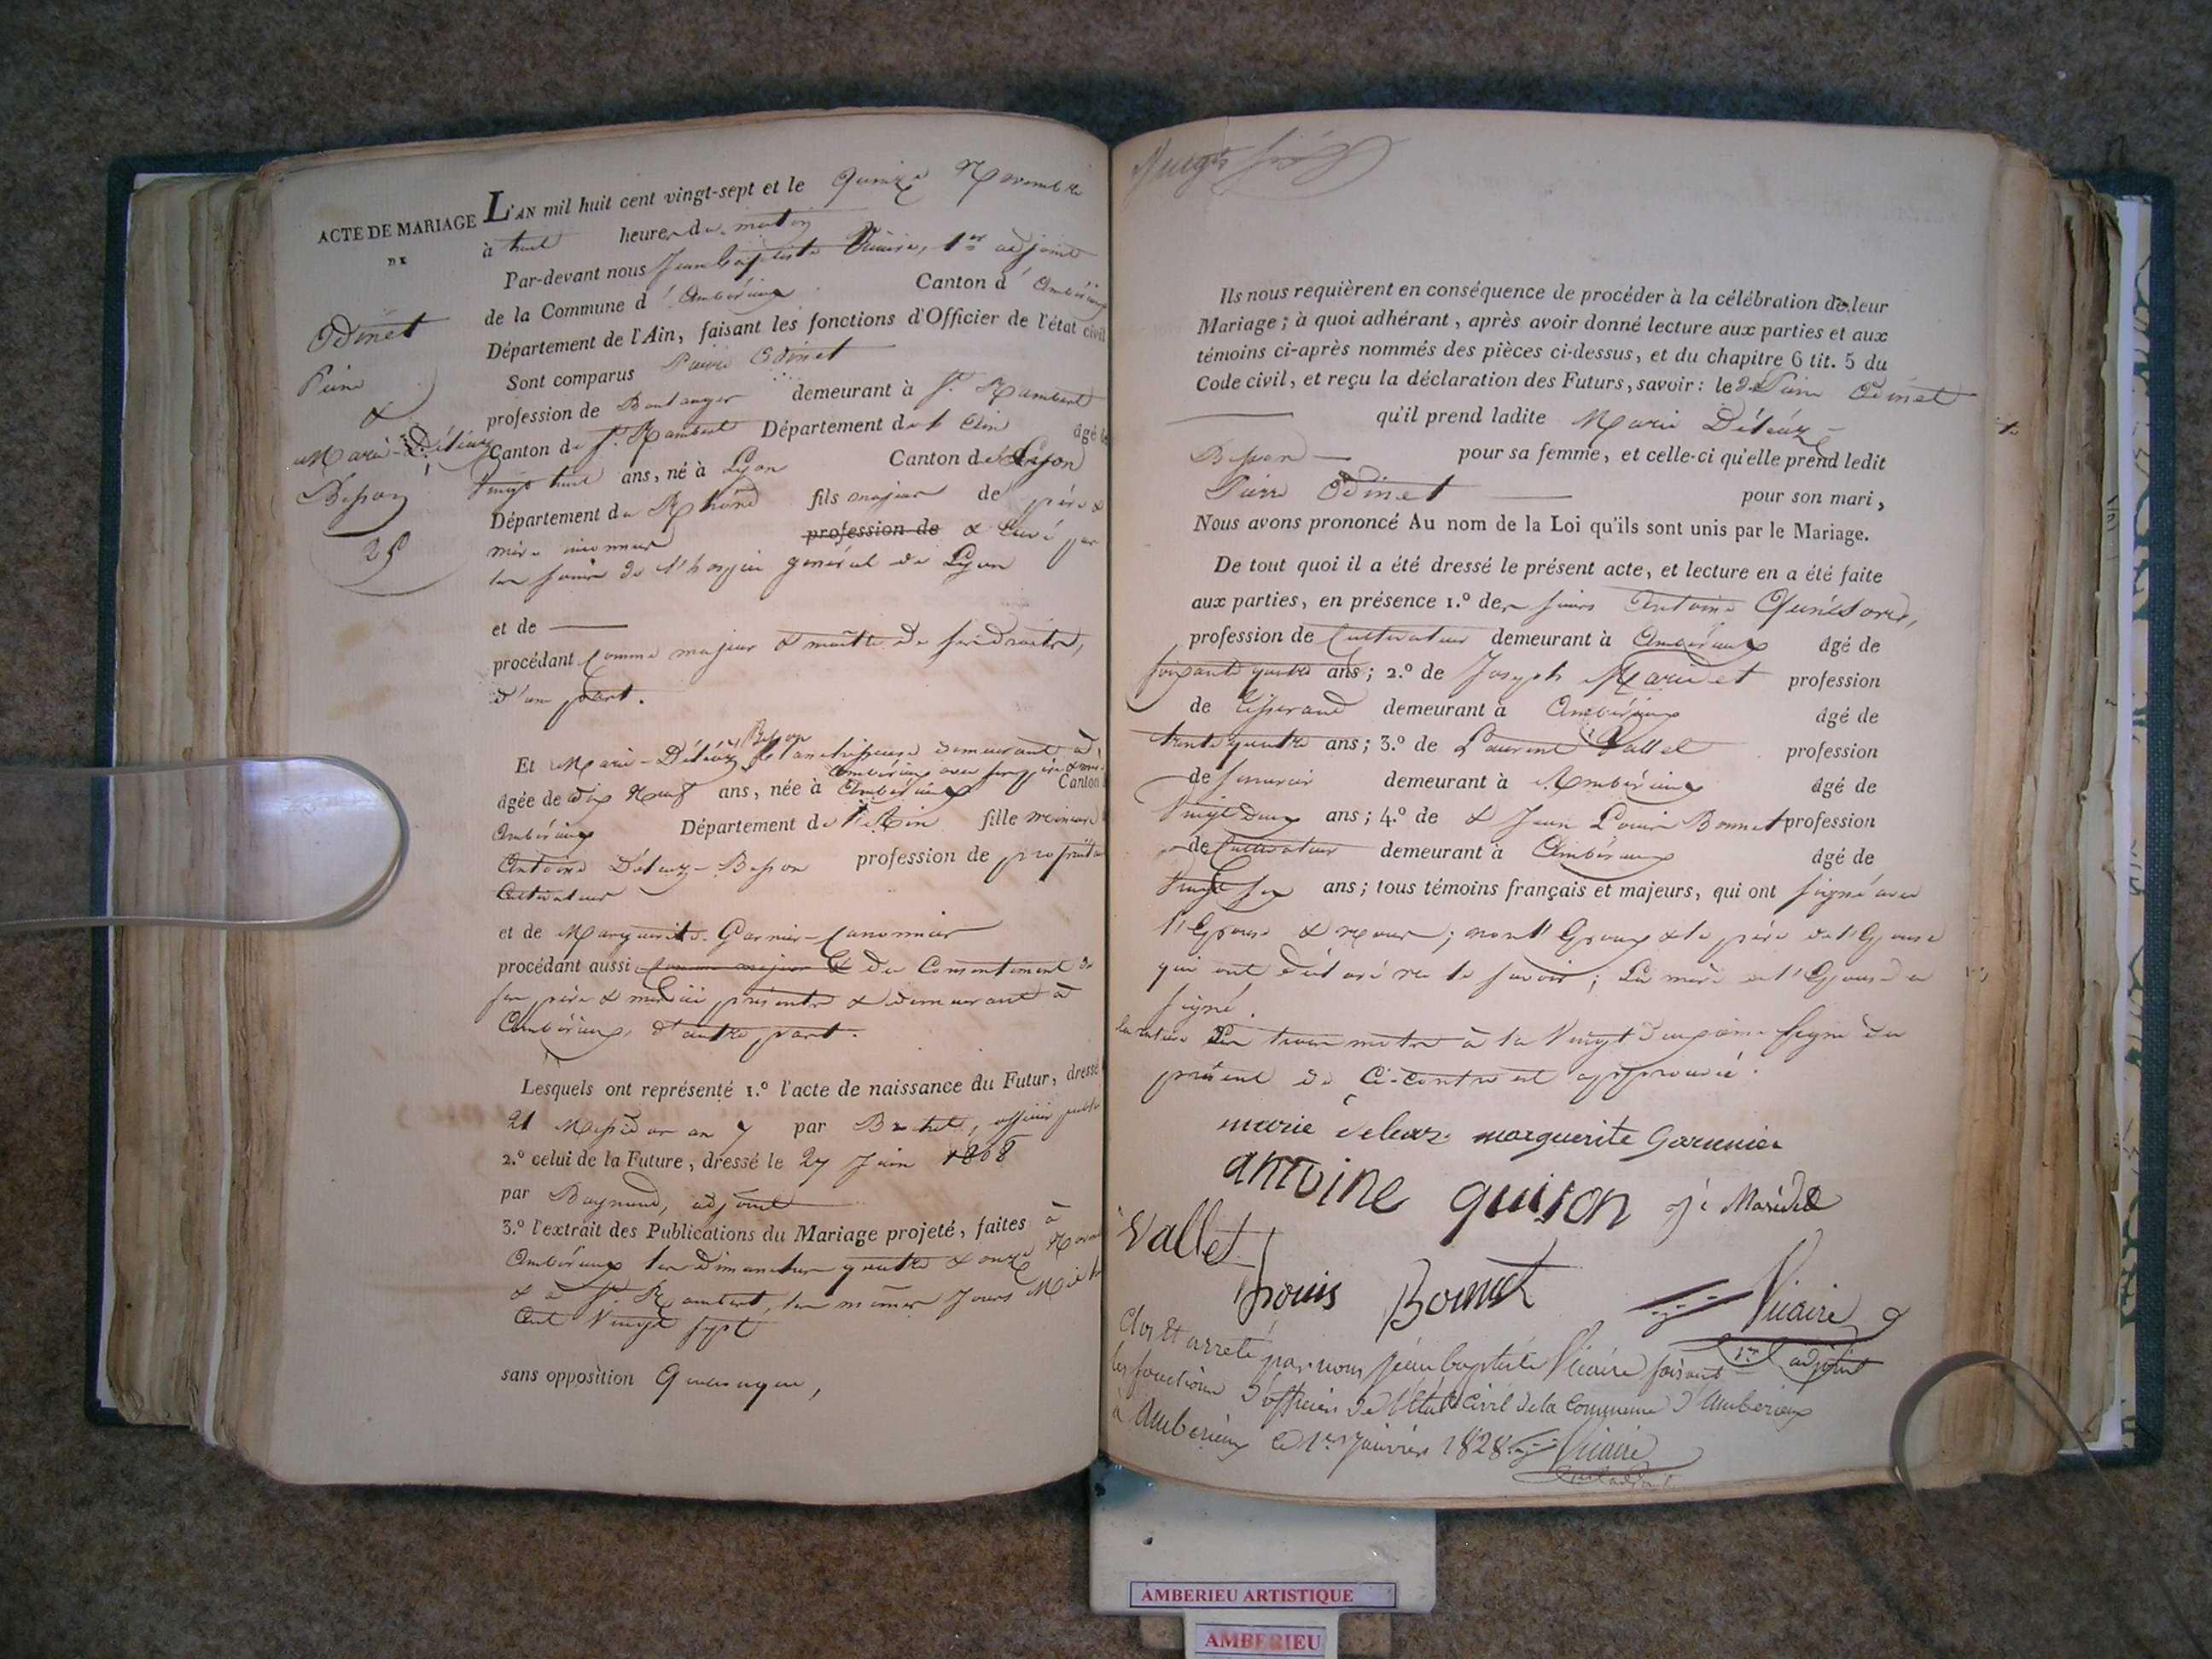 ACTE DE MARIAGE
DE
Odinet
Pierre
&
Marie-Déléaz
Besson
25
L'AN mil huit cent vingt-sept et le Quinze Novembre
à huit heures du matin
Par-devant nous Jean Baptiste Vicaire, 1er adjoint
de la Commune d'Ambérieux Canton d'Ambérieux
Département de l'Ain, faisant les fonctions d'Officier de l'état civil
Sont comparus Pierre Odinet
profession de Boulanger demeurant à St. Rambert
Canton de St. Rambert Département de l'Ain âgé de
Vingt huit ans, né à Lyon Canton de Lyon
Département du Rhône fils majeur de père &
mère inconnus profession de & élevé par
les soins de l'hospice général de Lyon
et de
procédant comme majeur & maître de ses droits,
d'une part.
Besson
Et Marie-Déléaz demeurant à
Ambérieux avec ses père & mère
âgée de dix Neuf ans, née à Ambérieux Canton
Ambérieux Département de l'Ain fille mineure
Antoine Déléaz-Besson profession de propriétaire
Cultivateur
et de Marguerite Garnier-Canonnier
procédant aussi comme majeur & du Consentement de
ses père & mère ici présents & demeurant à
Ambérieux, d'autre part.
Lesquels ont représenté 1.º l'acte de naissance du Futur, dressé
21 Messidor an 7 par officier public
2.º celui de la Future, dressé le 27 Juin 1808
par Raymond, adjoint
3.º l'extrait des Publications du Mariage projeté, faites à
Ambérieux les dimanches quatre & onze
& à St. Rambert, les mêmes Jours Mil huit
Cent Vingt sept
sans opposition Quelconque,
Ils nous requièrent en conséquence de procéder à la célébration de leur
Mariage; à quoi adhérant, après avoir donné lecture aux parties et aux
témoins ci-après nommés des pièces ci-dessus, et du chapitre 6 tit. 5 du
Code civil, et reçu la déclaration des Futurs, savoir: le dt Pierre Odinet
qu'il prend ladite Marie Déléaz-
Besson pour sa femme, et celle-ci qu'elle prend ledit
Pierre Odinet pour son mari,
Nous avons prononcé Au nom de la Loi qu'ils sont unis par le Mariage.
De tout quoi il a été dressé le présent acte, et lecture en a été faite
aux parties, en présence 1.º des sieurs Antoine
profession de Cultivateur demeurant à Ambérieux âgé de
soixante quatre ans; 2.º de Joseph Maridet profession
de Tisserand demeurant à Ambérieux âgé de
trente quatre ans; 3.º de Laurent Vallet profession
de serrurier demeurant à Ambérieux âgé de
Vingt Deux ans; 4.º de & Jean Louis Bonnet profession
de Cultivateur demeurant à Ambérieux âgé de
Vingt six ans; tous témoins français et majeurs, qui ont signé avec
l'Epouse & nous; non l'Epoux & le père de l'Epouse
qui ont déclaré ne le savoir; La mère de l'Epouse a
signé.
la rature de trois mots à la Vingt Deuxième ligne du
présent de Ci-contre est approuvée.
marie deleaz marguerite Garennier
antoine quison je Maridet
Vallet
Louis Bonnet
Vicaire
1er adjoint
Clos et arrêté par nous Jean baptiste Vicaire faisant
les fonctions d'officier de l'état civil de la Commune d'Ambérieux
à Ambérieux le 1er Janvier 1828 Vicaire
AMBERIEU ARTISTIQUE
AMBERIEU